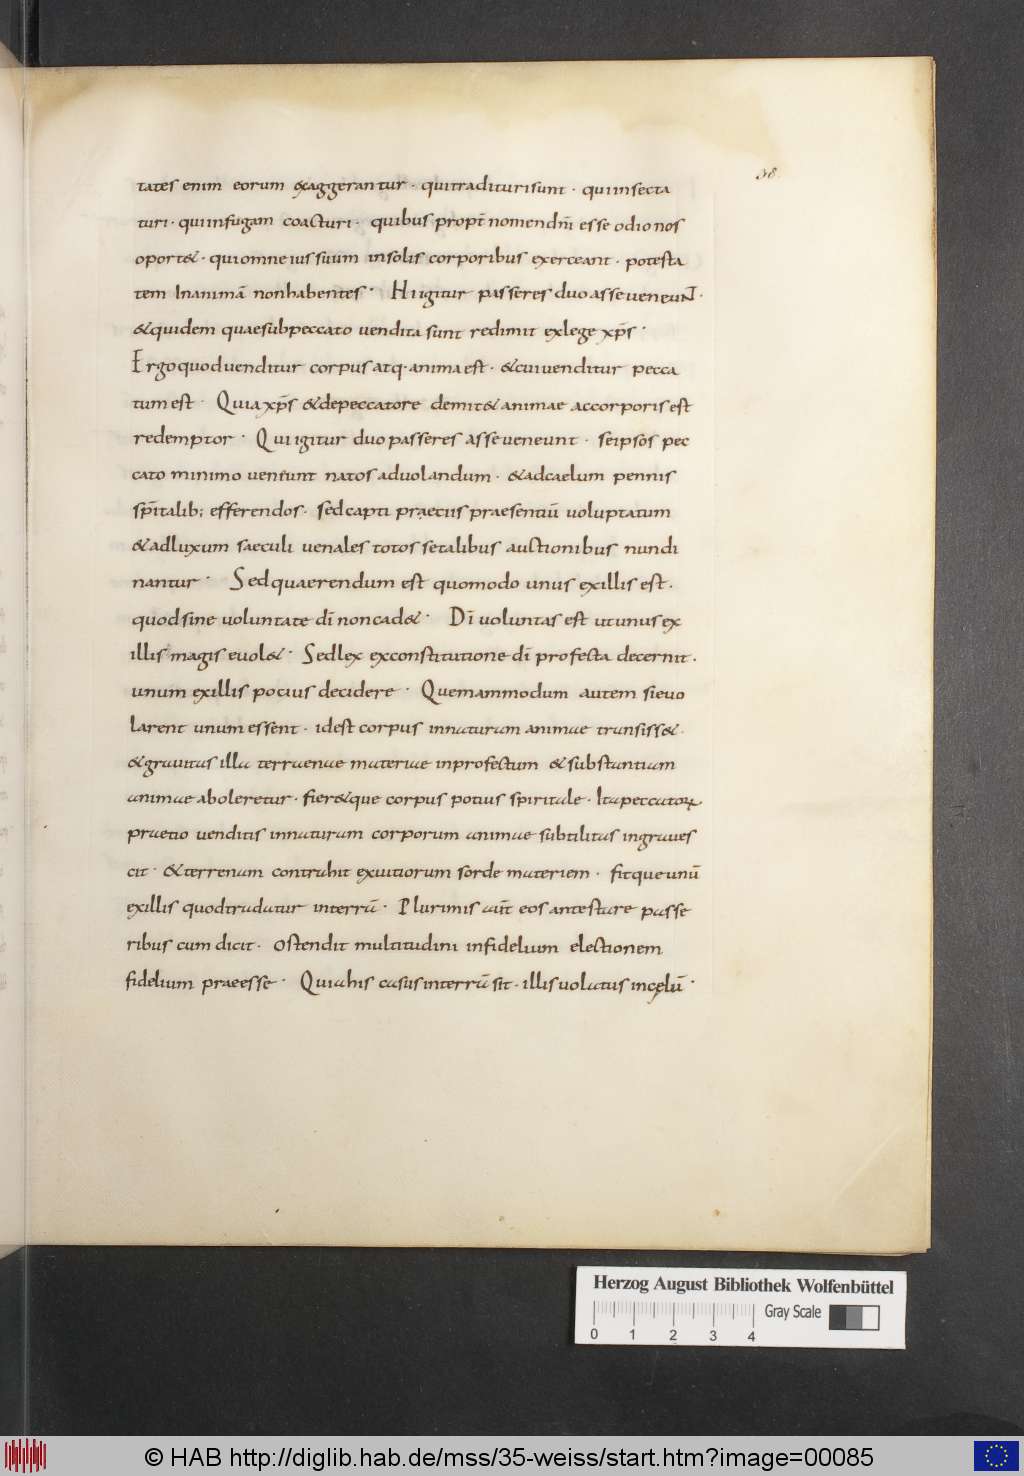 38
tates enim eorum exaggerantur · qui tradituri sunt · qui insecta
turi · qui in fugam coacturi · quibus propt̄ nomen dn̄i esse odio nos
oport& · qui omne ius suum in solis corporibus exerceant · potesta
tem In animā non habentes · Hi igitur passeres duo asse veneuNT ·
& quidem quae sub peccato vendita sunt redimit ex lege xp̄s ·
Ergo quod venditur corpus atq· anima est · & cui venditur pecca
tum est · Quia xp̄s & de peccatore demit & animae ac corporis est
redemptor · Qui igitur duo passeres asse veneunt · se ipsos pec
cato minimo veneunt natos ad volandum · & ad caelum pennis
sp̄italib; efferendos · sed capti praetiis praesentiū voluptatum
& ad luxum saeculi venales totos se talibus auctionibus nundi
nantur · Sed quaerendum est quomodo unus ex illis est ·
quod sine voluntate dī non cad& · Dī voluntas est ut unus ex
illis magis evol& · Sed lex ex constitutione dī profecta decernit ·
unum ex illis pocius decidere · Quemammodum autem si evo
larent unum essent · id est corpus in naturam animae transiss& ·
& gravitas illa terraenae materiae in profectum & substantiam
animae aboleretur · fier&que corpus potius spiritale · Ita peccatoꝝ
praetio venditis in naturam corporum animae subtilitas ingraves
cit · & terrenam contrahit ex vitiorum sorde materiem · fitque unū
ex illis quod tradatur in terrā · Plurimis aūt eos antestare passe
ribus cum dicit · ostendit multitudini infidelium electionem
fidelium praeesse · Quia his casus in terrā sit · illis volatus in cęlū ·
Herzog August Bibliothek Wolfenbüttel
Gray Scale
0 1 2 3 4
© HAB http://diglib.hab.de/mss/35-weiss/start.htm?image=00085